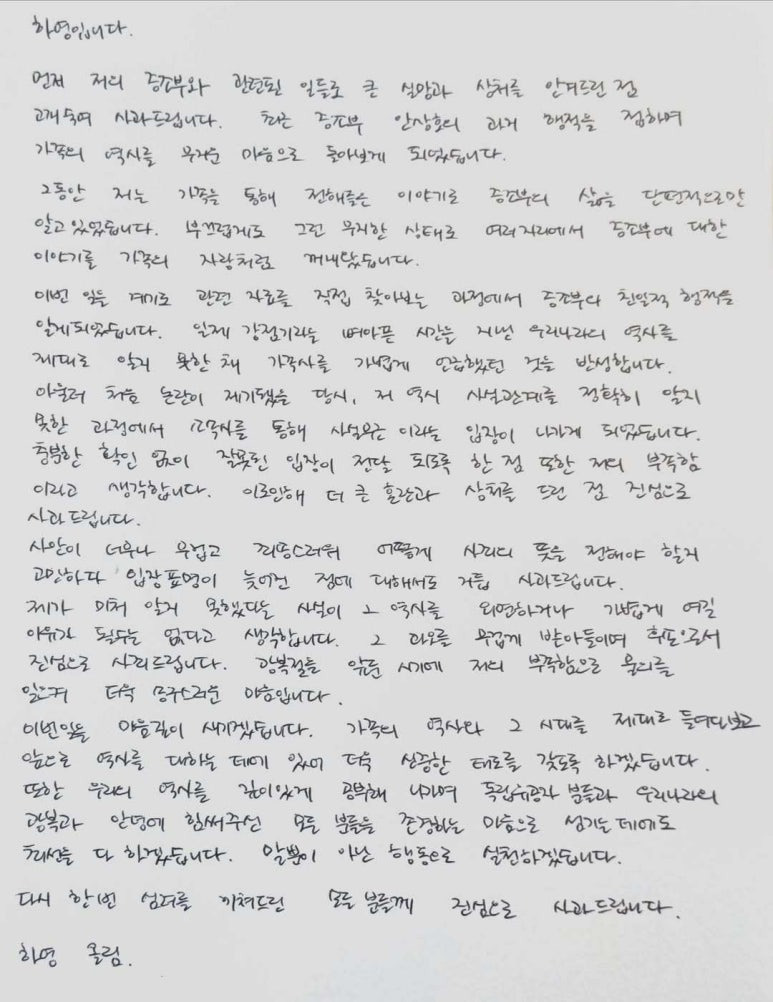 하영입니다.
먼저 저의 증조부와 관련된 일들로 큰 실망과 상처를 안겨드린 점
고개숙여 사과드립니다. 최근 증조부 안상호의 과거 행적을 접하며
가족의 역사를 무거운 마음으로 돌아보게 되었습니다.
그동안 저는 가족을 통해 전해들은 이야기로 증조부의 삶을 단편적으로만
알고있었습니다. 부끄럽게도 그런 무지한 상태로 여러자리에서 증조부에 대한
이야기를 가족의 자랑처럼 꺼내놨습니다.
이번 일을 계기로 관련 자료를 직접 찾아보는 과정에서 증조부의 친일적 행적을
알게되었습니다. 일제 강점기라는 뼈아픈 시간을 지낸 우리나라의 역사를
제대로 알지 못한 채 가족사를 가볍게 언급했던 것을 반성합니다.
아울러 처음 논란이 제기됐을 당시, 저 역시 사실관계를 정확히 알지
못한 과정에서 소속사를 통해 사실무근 이라는 입장이 나가게 되었습니다.
충분한 확인 없이 잘못된 입장이 전달 되도록 한 점 또한 저의 부족함
이라고 생각합니다. 이로인해 더 큰 혼란과 상처를 드린 점 진심으로
사과드립니다.
사안이 너무나 무겁고 죄송스러워 어떻게 사죄의 뜻을 전해야 할지
고민하다 입장표명이 늦어진 점에 대해서도 거듭 사과드립니다.
제가 미처 알지 못했다는 사실이 그 역사를 외면하거나 가볍게 여길
이유가 될수는 없다고 생각합니다. 그 과오를 무겁게 받아들이며 후손으로서
진심으로 사죄드립니다. 광복절을 앞둔 시기에 저의 부족함으로 물의를
일으켜 더욱 송구스러운 마음입니다.
이번일을 마음깊이 새기겠습니다. 가족의 역사와 그 시대를 제대로 들여다보고
앞으로 역사를 대하는 데에 있어 더욱 신중한 태도를 갖도록 하겠습니다.
또한 우리의 역사를 깊이있게 공부해 나가며 독립유공자 분들과 우리나라의
광복과 안녕에 힘써주신 모든 분들을 존경하는 마음으로 섬기는 데에도
최선을 다 하겠습니다. 말뿐이 아닌 행동으로 실천하겠습니다.
다시 한번 심려를 끼쳐드린 모든 분들께 진심으로 사과드립니다.
하영 올림.